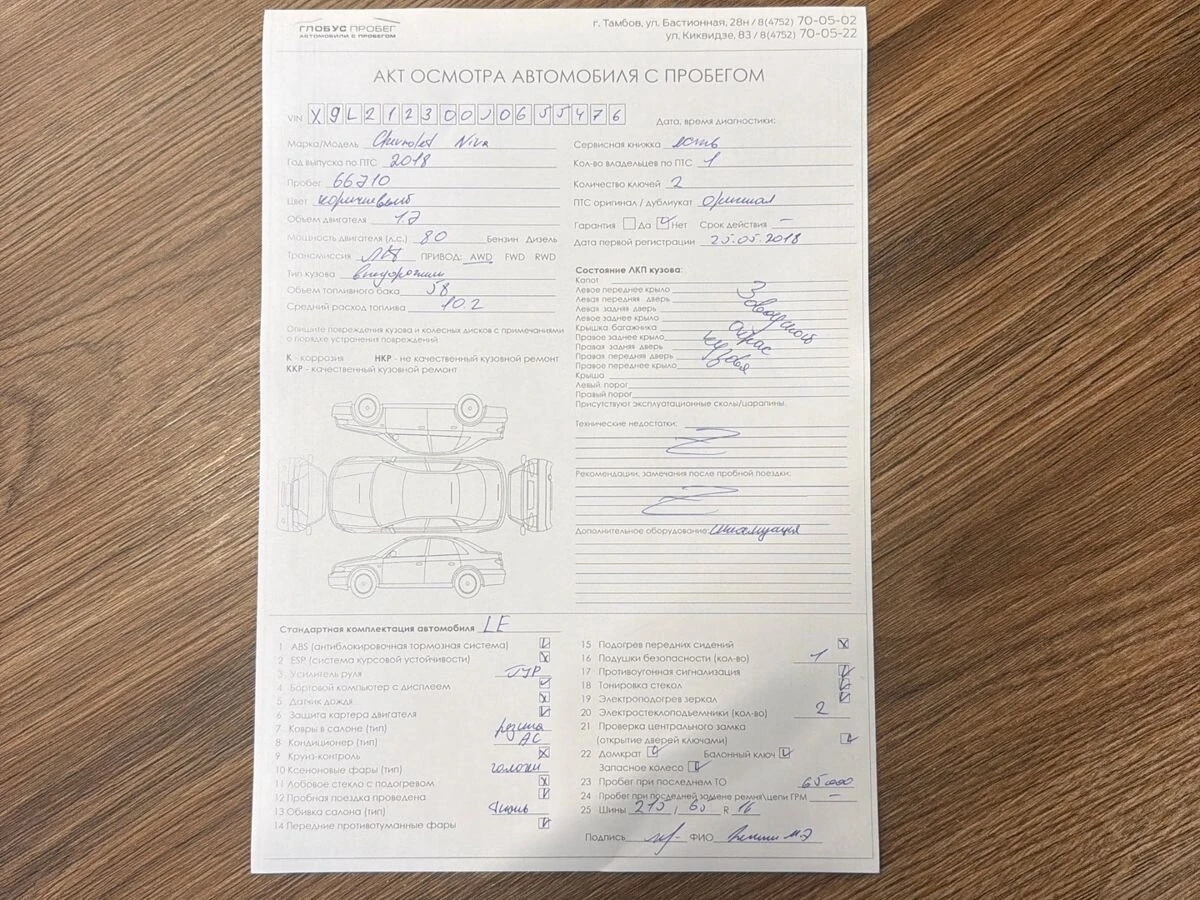 ГЛОБУС ПРОБЕГ
АВТОМОБИЛИ С ПРОБЕГОМ
г. Тамбов, ул. Бастионная, 28н / 8(4752) 70-05-02
ул. Киквидзе, 83 / 8(4752) 70-05-22
АКТ ОСМОТРА АВТОМОБИЛЯ С ПРОБЕГОМ
VIN X9L212300J0655476
Дата, время диагностики:
Марка/Модель Chevrolet Niva
Год выпуска по ПТС 2018
Пробег 66710
Цвет коричневый
Объем двигателя 1.7
Мощность двигателя (л.с.) 80 Бензин Дизель
Трансмиссия ПРИВОД: AWD FWD RWD
Тип кузова внедорожник
Объем топливного бака 58
Средний расход топлива 10.2
Сервисная книжка есть
Кол-во владельцев по ПТС 1
Количество ключей 2
ПТС оригинал / дубликат Оригинал
Гарантия Да Нет Срок действия —
Дата первой регистрации 25.05.2018
Опишите повреждения кузова и колесных дисков с примечаниями
о порядке устранения повреждений
К - коррозия НКР - не качественный кузовной ремонт
ККР - качественный кузовной ремонт
Состояние ЛКП кузова:
Капот
Левое переднее крыло
Левая передняя дверь
Левая задняя дверь
Левое заднее крыло
Крышка багажника
Правое заднее крыло
Правая задняя дверь
Правая передняя дверь
Правое переднее крыло
Крыша
Левый порог
Правый порог
Заводской
окрас
кузова
Присутствуют эксплуатационные сколы/царапины
Технические недостатки:
Z
Рекомендации, замечания после пробной поездки:
Z
Дополнительное оборудование: сигнализация
Стандартная комплектация автомобиля LE
1 ABS (антиблокировочная тормозная система)
2 ESP (система курсовой устойчивости)
3 Усилитель руля ГУР
4 Бортовой компьютер с дисплеем
5 Датчик дождя
6 Защита картера двигателя
7 Ковры в салоне (тип) резина
8 Кондиционер (тип) AC
9 Круиз-контроль
10 Ксеноновые фары (тип) галоген
11 Лобовое стекло с подогревом
12 Пробная поездка проведена
13 Обивка салона (тип) ткань
14 Передние противотуманные фары
15 Подогрев передних сидений
16 Подушки безопасности (кол-во) 1
17 Противоугонная сигнализация
18 Тонировка стекол
19 Электроподогрев зеркал
20 Электростеклоподъемники (кол-во) 2
21 Проверка центрального замка
(открытие дверей ключами)
22 Домкрат Балонный ключ
Запасное колесо
23 Пробег при последнем ТО 65000
24 Пробег при последней замене ремня\цепи ГРМ —
25 Шины 215 / 65 R 16
Подпись ФИО